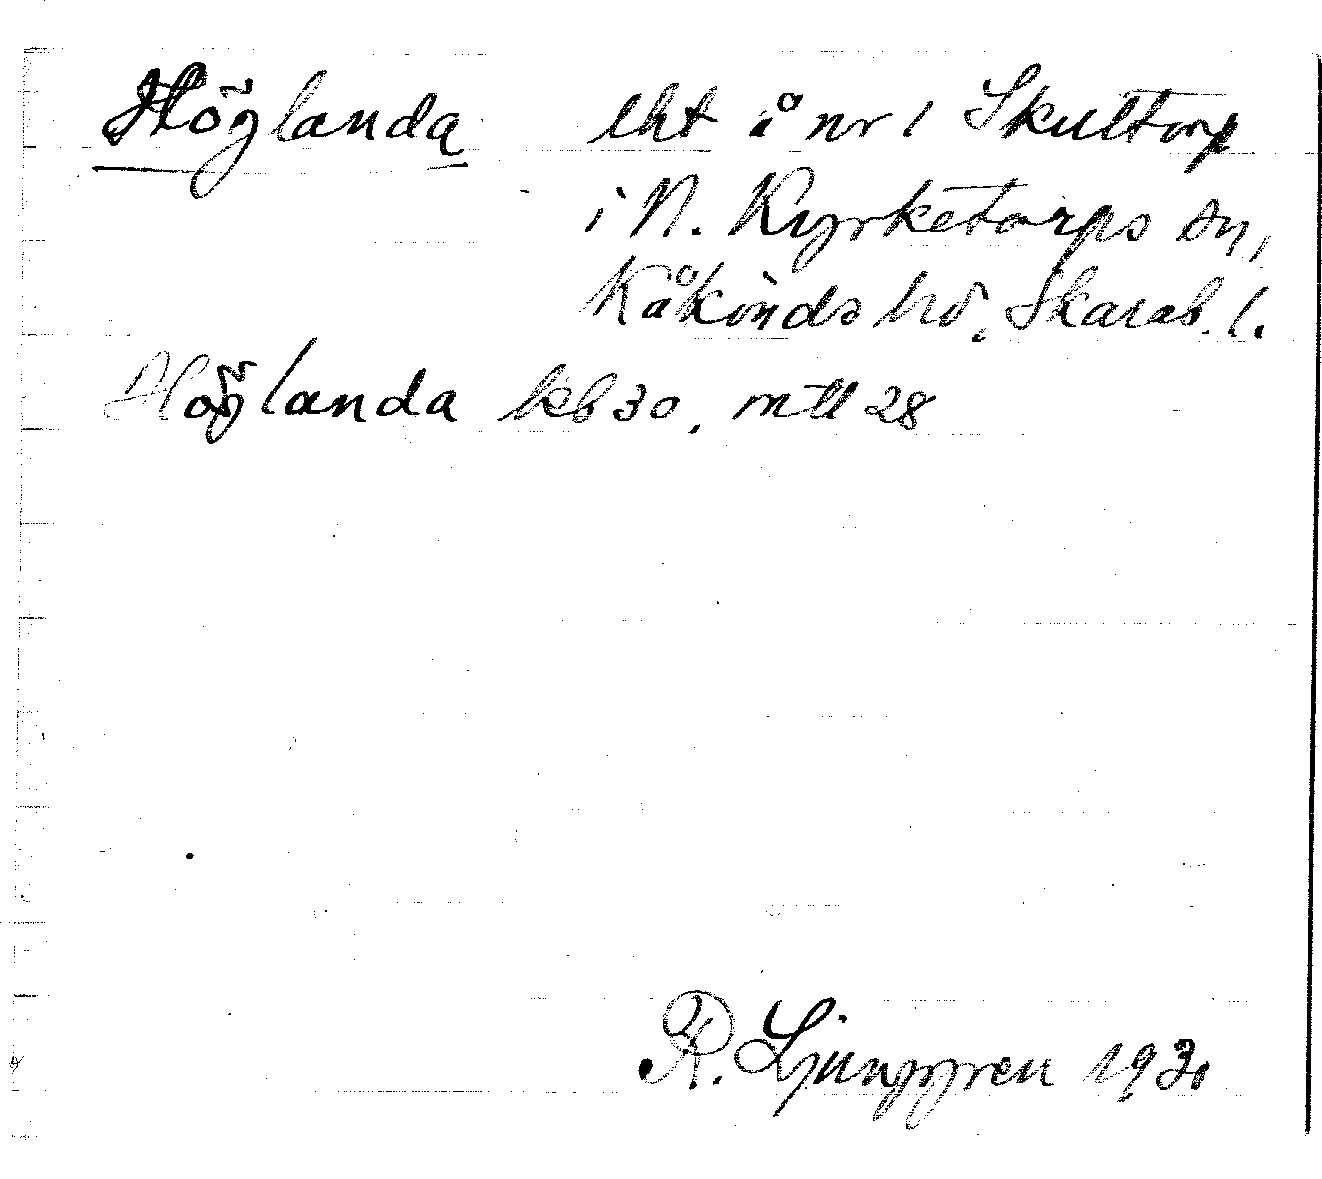 Höglanda lht å nr 1 Skultorp
i N. Kyrketorps sn,
Kåkinds hd, Skarab. l.
Höglanda kb 30, mtl 28
R. Ljunggren 1930